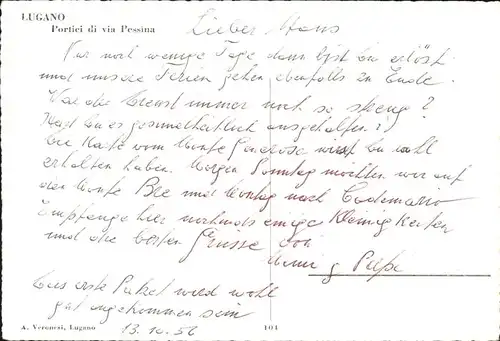 LUGANO
Portici di via Pessina
Lieber Hans
Nur noch wenige Tage dann bist du erlöst
und unsere Ferien gehen ebenfalls zu Ende.
War der Dienst immer noch so streng?
Hast du es gesundheitlich ausgehalten?
Die Karte vom Monte Generoso wirst du wohl
erhalten haben. Morgen Sonntag möchten wir auf
den Monte Bre und Montag nach Cademario
Empfange hier nochmals einige Kleinigkeiten
und die besten Grüsse von
Mami & Papa
Das erste Paket wird wohl
gut angekommen sein
A. Veronesi, Lugano
13.10.56
104